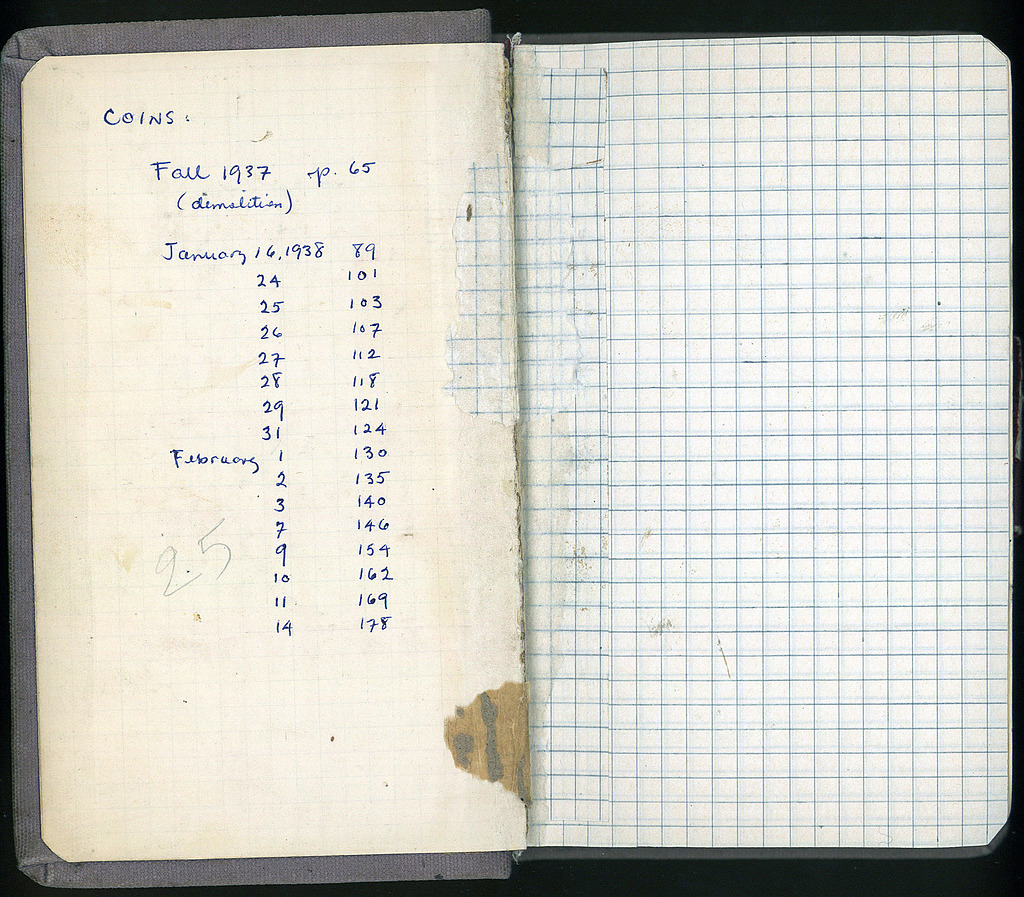 COINS:
Fall 1937 p. 65
(demolition)
January 16, 1938 89
24 101
25 103
26 107
27 112
28 118
29 121
31 124
February 1 130
2 135
3 140
7 146
9 154
10 162
11 169
14 178
25